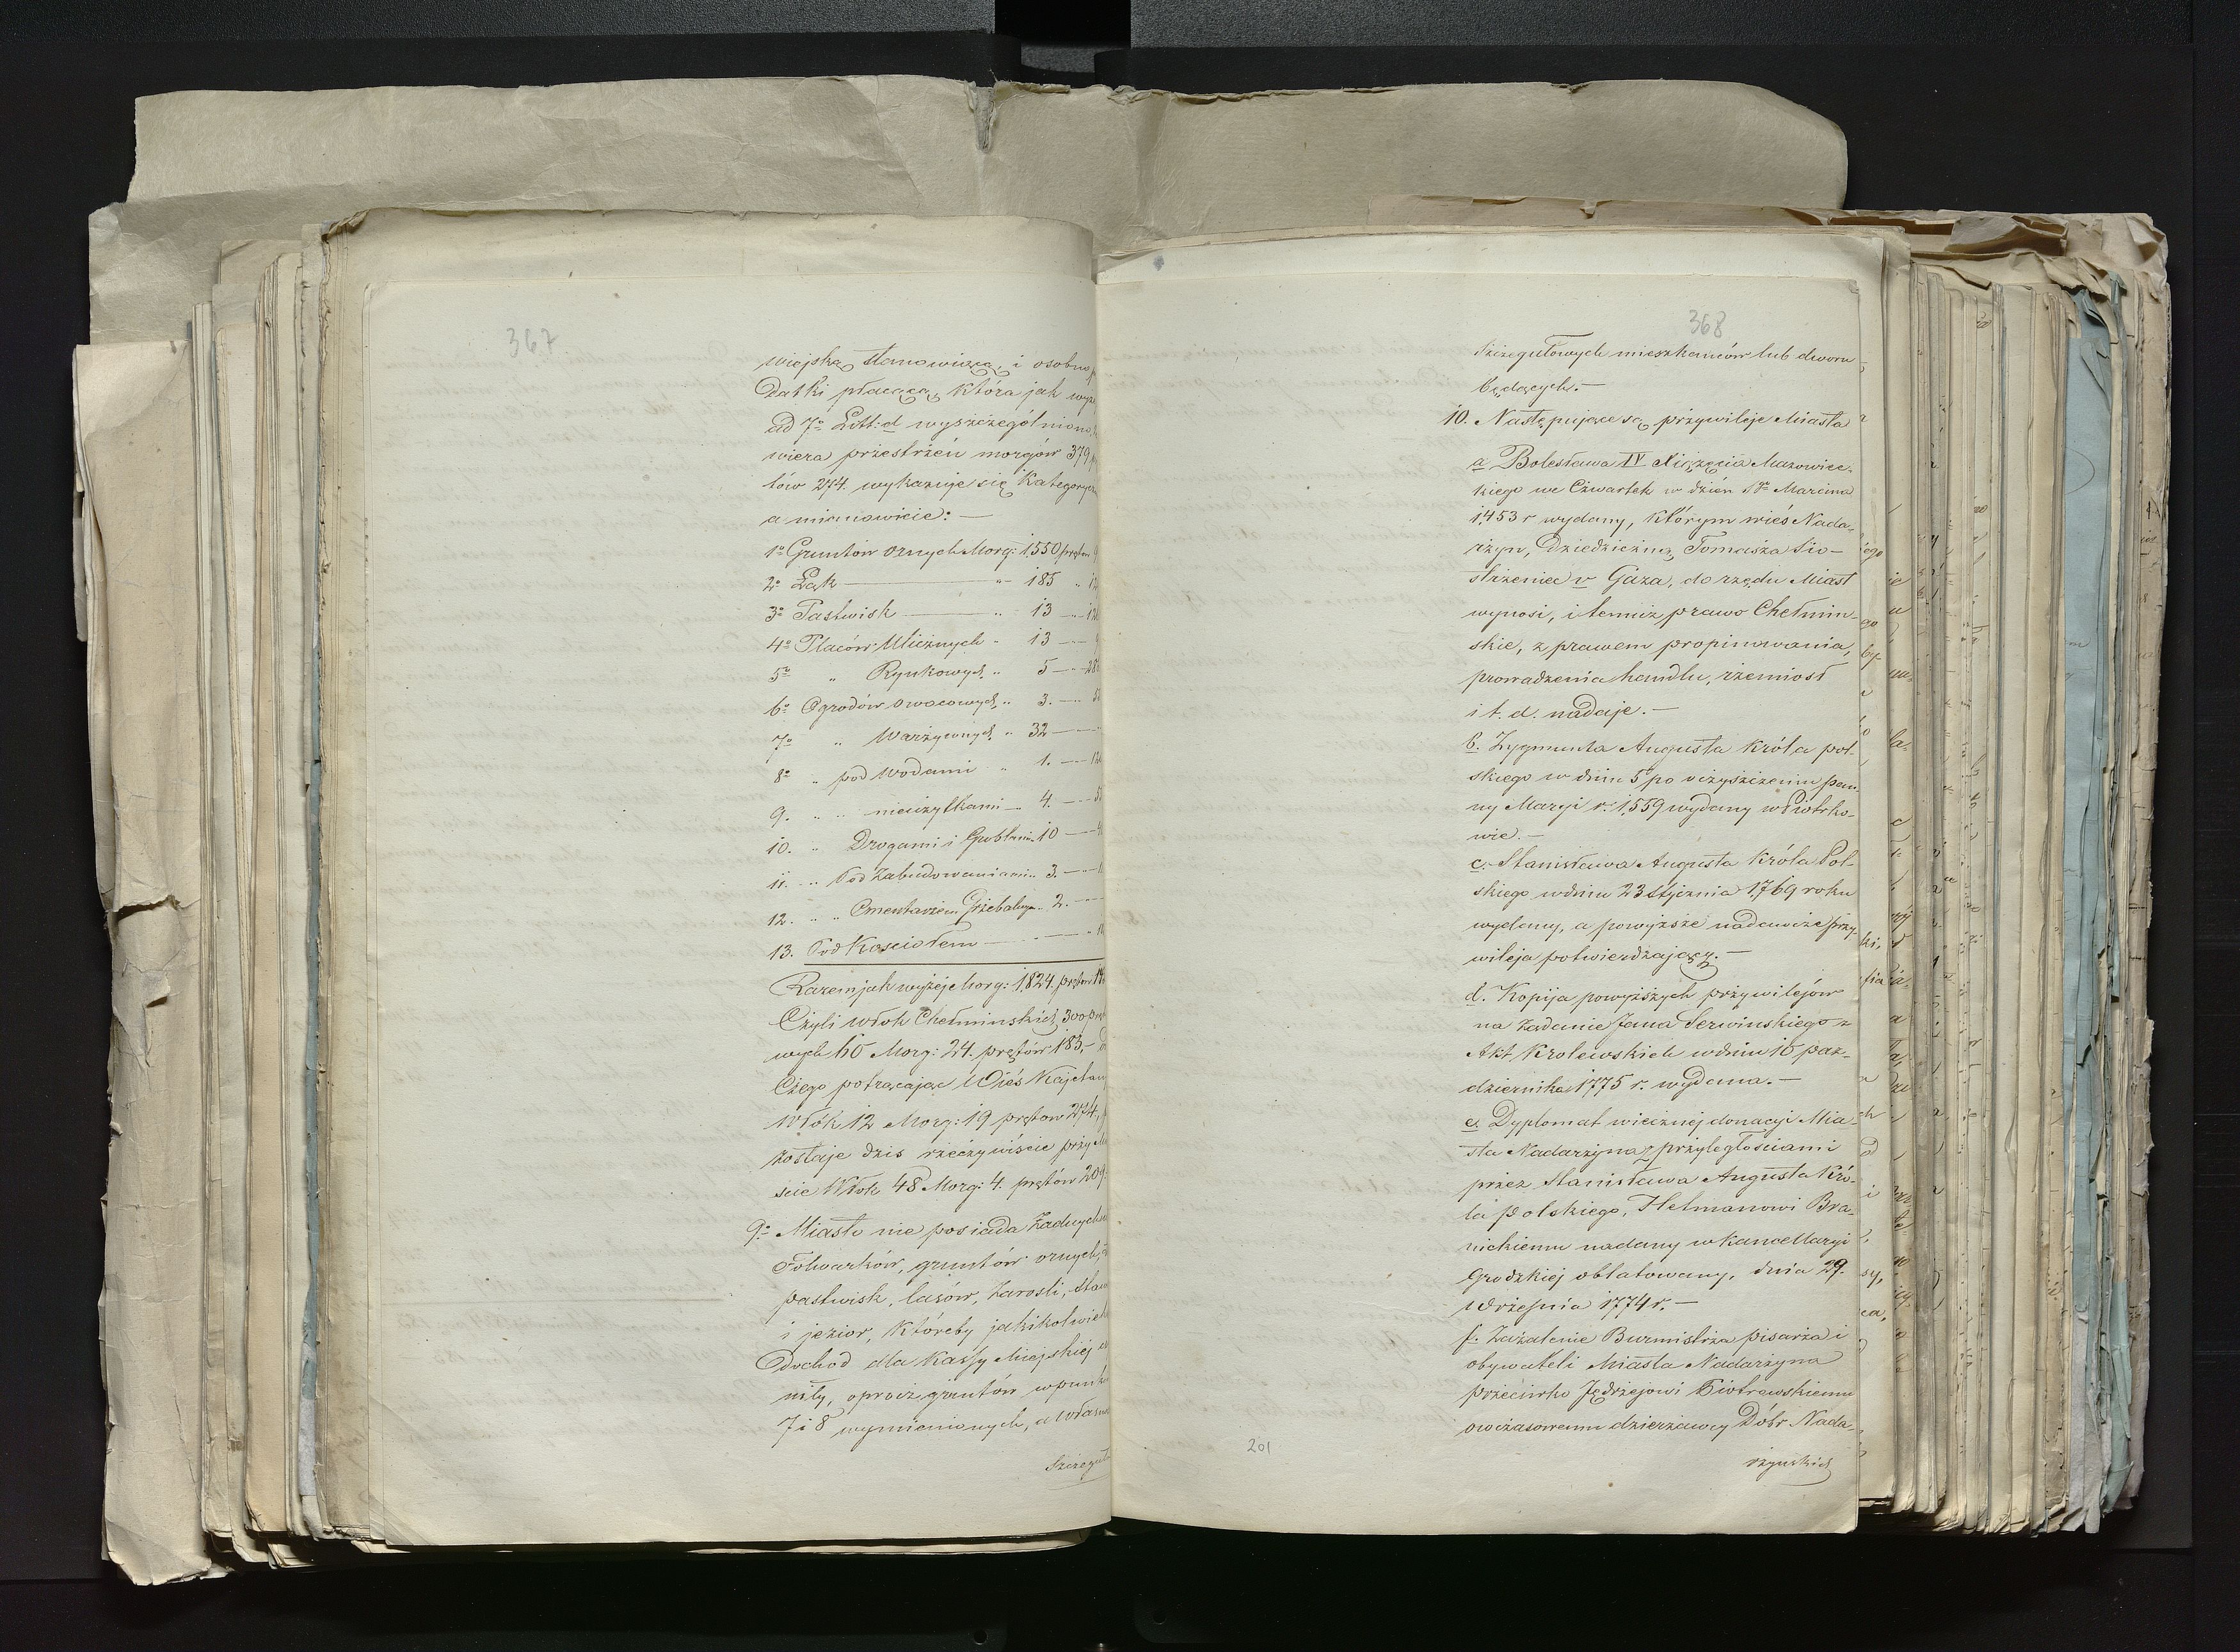 367
wiejską stanowiącą, i osobno
Datki płacącą, która jak wyż
ad 7o Litt: d wyszczególniono,
wiera przestrzeń morgów 379
tów 274. wykazuje się Kategorycz
a mianowicie: —
1o Gruntów ornych Morg: 1,550 prętów
2o Łąk — „ — 185 „
3o Pastwisk — „ 13 — „
4o Placów Ulicznych „ 13 —
5o „ Rynkowych „ 5 — 28
6o Ogrodów owocowych „ 3. —
7o „ Warzywnych „ 32 —
8o „ pod Wodami „ 1. —
9. „ „ nieużytkami — 4. —
10. „ Drogami i Groblami 10 —
11. „ Pod Zabudowaniami „ 3. —
12. „ „ Cmentarzem Grzebalnym „ 2. —
13. Pod Kosciołem —
Razem jak wyżej Morg: 1,824. prętów
Czyli włok Chełminskich 300 prę
wych 60 Morg: 24. prętów 183, —
Czego potrącając Wieś Kajetany
Włók 12 Morg: 19 prętow 274,
zostaje dzis rzeczywiście przy Mie
scie Włok 48 Morg: 4. prętów 209.
9o Miasto nie posiada Żadnych
Folwarków, gruntów ornych,
pastwisk, lasów, Zarosli, staw
i jezior, któreby jakikolwiek
Dochod dla Kassy Miejskiej
niły, oprocz gruntów w punk
7 i 8 wymienionych, a własno
Szczegół
368
Szczegułowych mieszkańców lub dworu
będących. —
10. Następujące są przywileje Miasta
a Bolesława IV Xiążęcia Mazowiec-
kiego we Czwartek w dzień Sgo Marcina
1,453 r wydany, którym wieś Nada-
rzyn, Dziedziczną Tomasza Sio-
strzeniec v Gaza, do rzędu Miast
wynosi, i temuż prawo Chełmin-
skie, z prawem propinowania,
prowadzenia handlu, rzemiosł
i t. d. nadaje. —
b. Zygmunta Augusta króla pol-
skiego w dniu 5 po oczyszczeniu pan-
ny Maryi r. 1,559 wydany w Piotrko-
wie. —
c. Stanisława Augusta Króla Pol-
skiego w dniu 23 Stycznia 1,769 roku
wydany, a powyższe nadawcze przy-
wileja potwierdzający. —
d. Kopija powyższych przywilejów
na żądanie Jana Serwinskiego z
Akt Krolewskich w dniu 16 paz-
dziernika 1,775 r. wydana. —
e. Dyplomat wiecznéj donacyi Mia-
sta Nadarzyna z przyległościami
przez Stanisława Augusta Kró-
la polskiego, Hetmanowi Bra-
nickiemu nadany w Kancellaryi
Grodzkiej oblatowany, dnia 29.
Września 1774 r. —
f. Zażalenie Burmistrza pisarza i
obywateli Miasta Nadarzyna
przeciwko Jędrzejowi Piotrowskiemu
owczasowemu dzierżawcy Dóbr Nada-
rzynskich
201